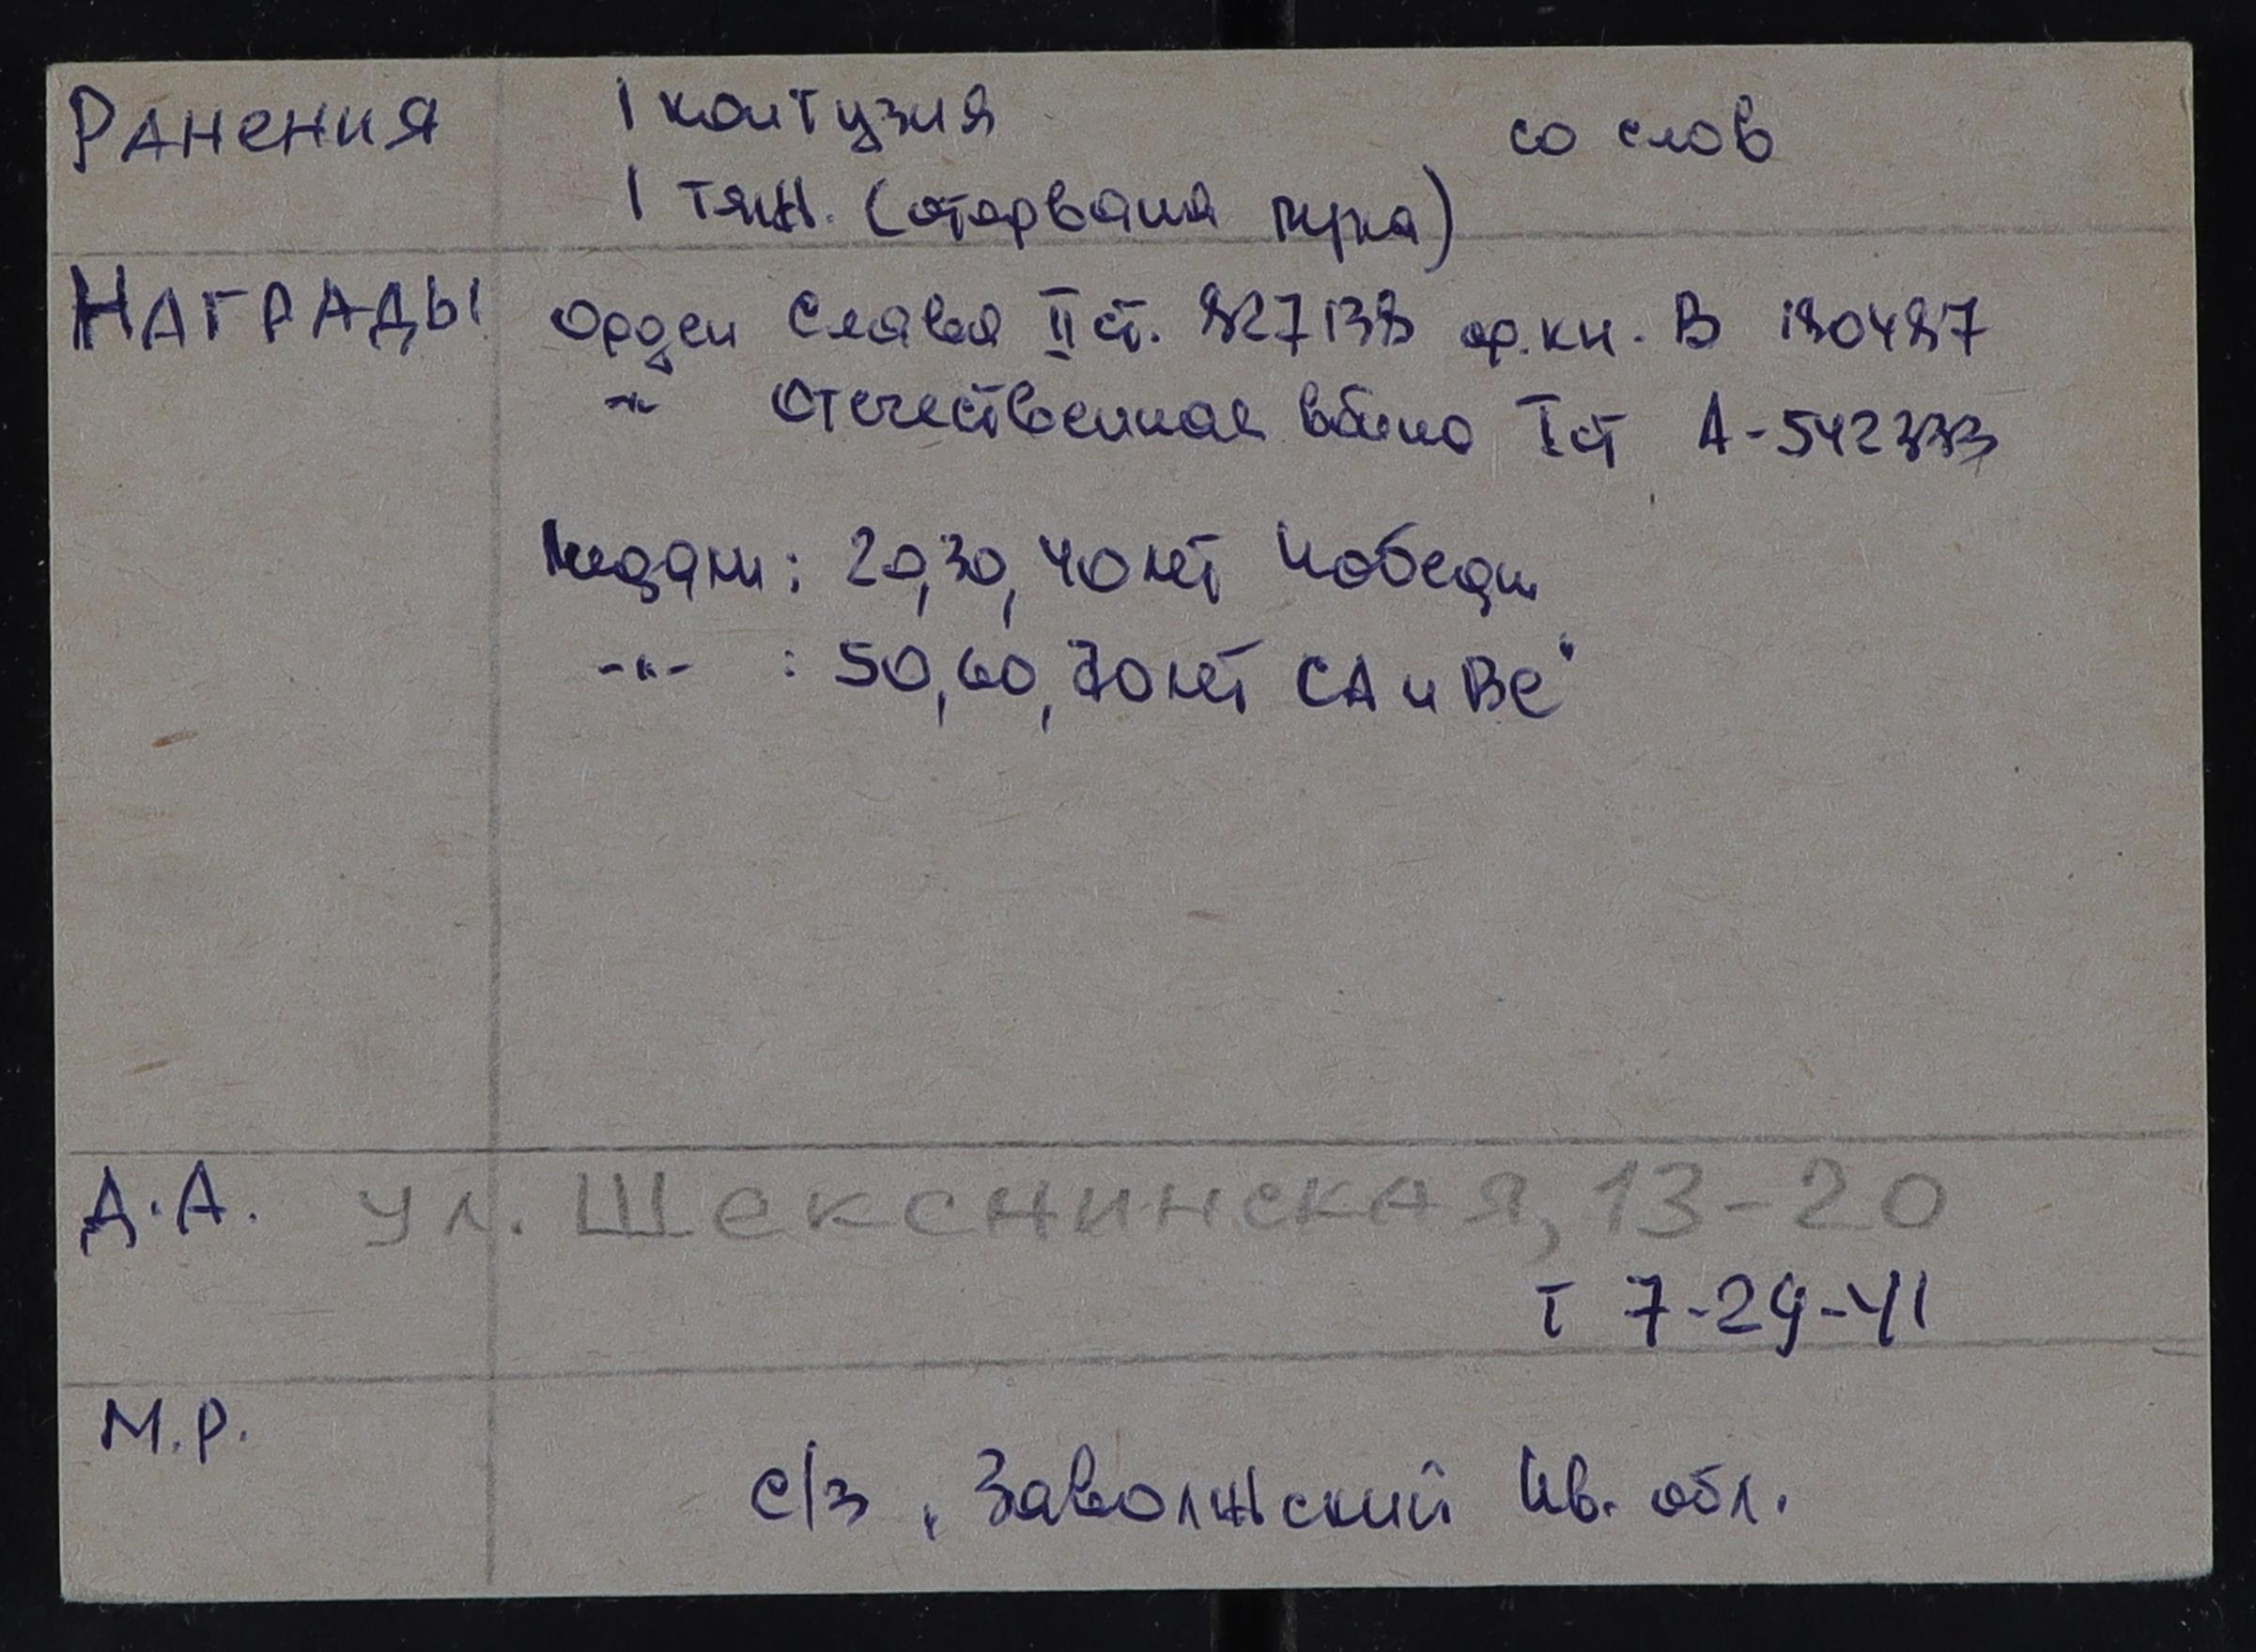 Ранения 1 контузия со слов
1 тяж. (оторвана рука)
Награды орден Слава II ст. 827138 ор.кн. В 180487
-"- Отечественная война I ст А-542333
Медали: 20,30,40 лет Победы
-"- : 50,60,70 лет СА и ВС"
Д.А. ул. Шекснинская, 13-20
Т 7-29-41
М.Р.
с/з "Заволжский Ив. обл.